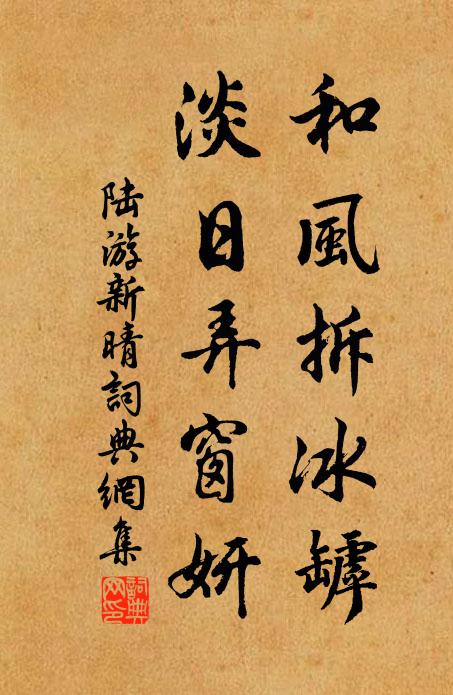 和風拆冰罅
淡日弄窗妍
陆游新晴詞典網集
詞典網印